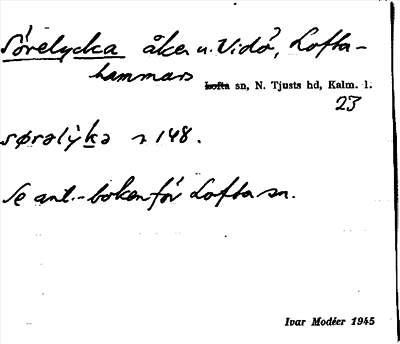 Sörelycka åker u. Vidö, Lofta-
hammars
Lofta sn, N. Tjusts hd, Kalm. l.
23
sørəlỳkə n 148.
Se ant.-boken för Lofta sn.
Ivar Modéer 1945